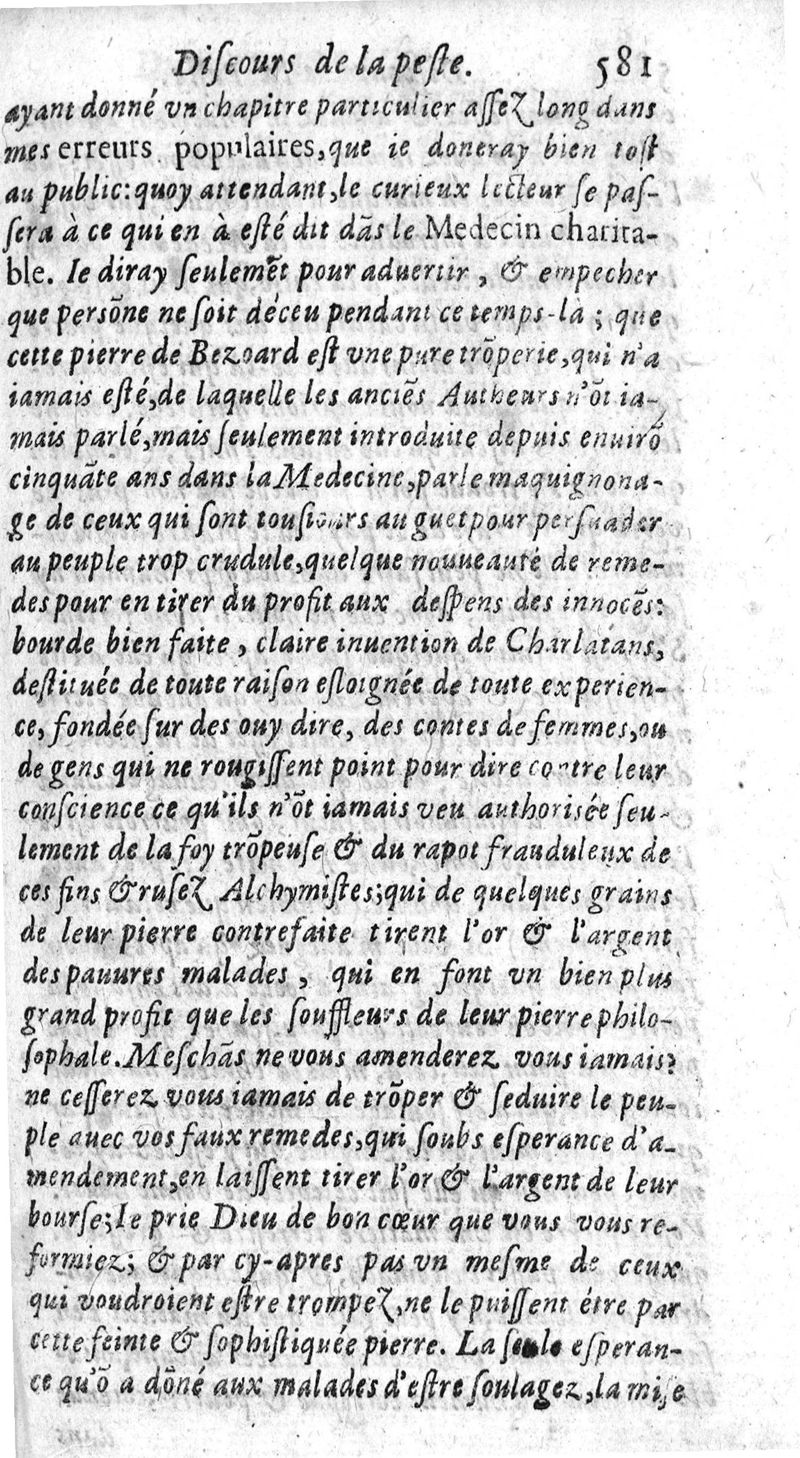 Diſcours de la peſte. 581
ayant donné vn chapitre particulier aſſeZ long dans
mes erreurs populaires, que ie doneray bien toſt
au public: quoy attendant, le curieux lecteur ſe paſ-
ſera à ce qui en à eſté dit dãs le Medecin charita-
ble. Ie diray ſeulemẽt pour aduertir, & empecher
que persõne ne ſoit déceu pendant ce temps-là; que
cette pierre de Bezoard eſt vne pure trõperie, qui n'a
iamais eſté, de laquelle les anciẽs Autheurs n'õt ia-
mais parlé, mais ſeulement introduite depuis enuirõ
cinquãte ans dans la Medecine, par le maquignona-
ge de ceux qui ſont touſiours au guet pour perſuader
au peuple trop crudule, quelque nouueauté de reme-
des pour en tirer du profit aux deſpens des innocẽs:
bourde bien faite, claire inuention de Charlatans,
deſtituée de toute raiſon eſloignée de toute experien-
ce, fondée ſur des ouy dire, des contes de femmes, ou
de gens qui ne rougiſſent point pour dire contre leur
conſcience ce qu'ils n'õt iamais veu authorisée ſeu-
lement de la foy trõpeuſe & du rapot frauduleux de
ces fins & ruſeZ Alchymiſtes; qui de quelques grains
de leur pierre contrefaite tirent l'or & l'argent
des pauures malades, qui en font vn bien plus
grand profit que les ſouffleurs de leur pierre philo-
ſophale. Meſchãs ne vous amenderez vous iamais?
ne ceſſerez vous iamais de trõper & ſeduire le peu-
ple auec vos faux remedes, qui ſoubs eſperance d'a-
mendement, en laiſſent tirer l'or & l'argent de leur
bourſe; Ie prie Dieu de bon cœur que vous vous re-
formiez; & par cy-apres pas vn meſme de ceux
qui voudroient eſtre trompeZ, ne le puiſſent étre par
cette feinte & ſophiſtiquée pierre. La ſeule eſperan-
ce qu'õ a dõné aux malades d'eſtre ſoulagez, la miſe